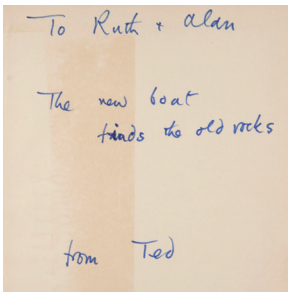 To Ruth + Alan
The new boat
finds the old rocks
from Ted